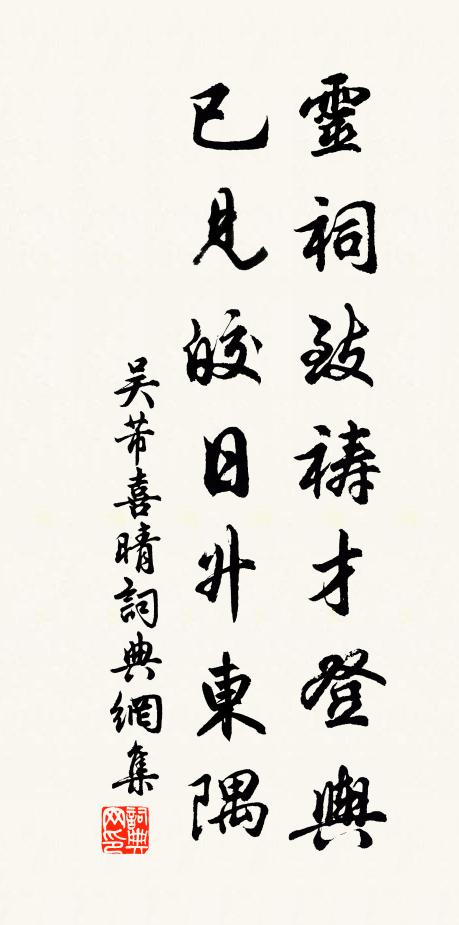 靈祠致禱才登輿
已見皎日升東隅
吴芾喜晴詞典網集
詞典网印